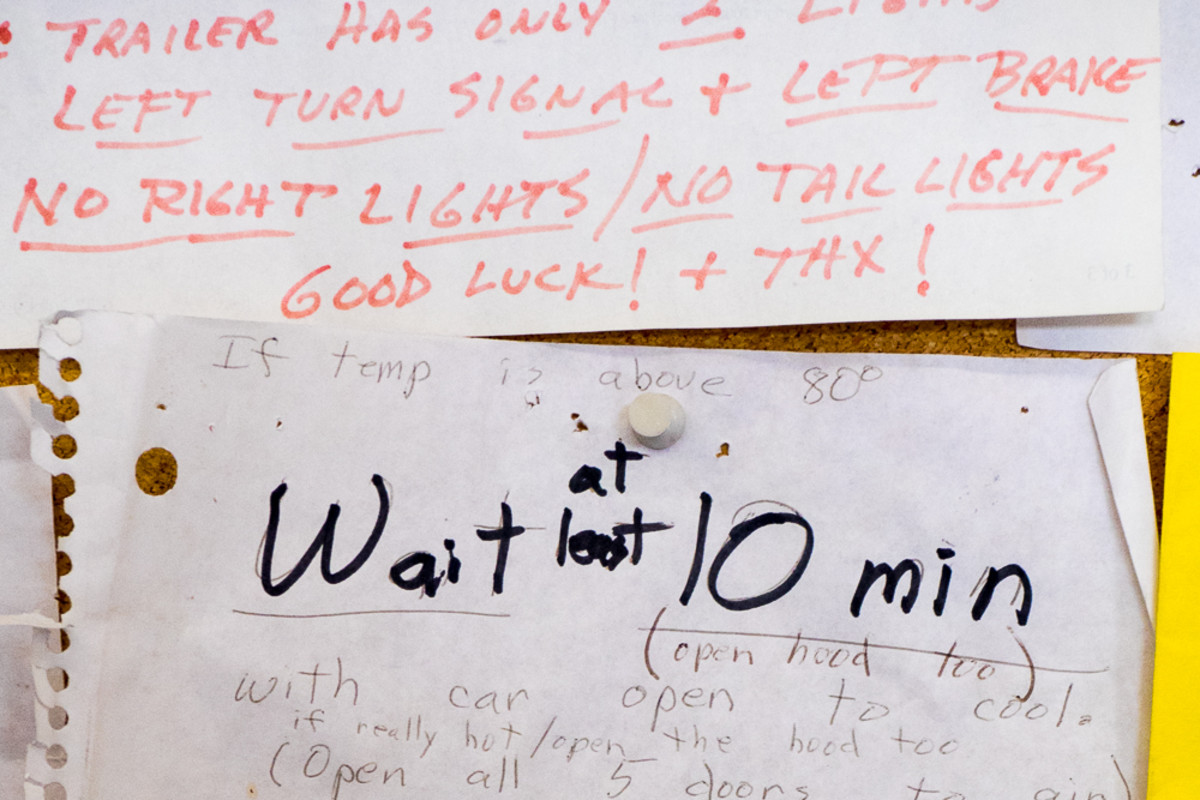 TRAILER HAS ONLY 2 LIGHTS
LEFT TURN SIGNAL + LEFT BRAKE
NO RIGHT LIGHTS / NO TAIL LIGHTS
GOOD LUCK! + THX!
If temp is above 80°
Wait at least 10 min
(open hood too)
with car open to cool.
if really hot/open the hood too
(Open all 5 doors to air)